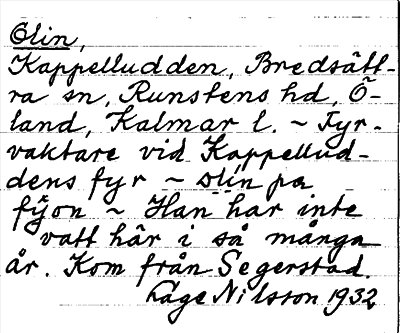 Olin,
Kappelludden, Bredsätt-
ra sn, Runstens hd, Ö-
land, Kalmar l. ~ Fyr-
vaktare vid Kappellud-
dens fyr ~ olin pa
fÿon ~ Han har inte
vatt här i så många
år. Kom från Segerstad.
Låge Nilsson 1932